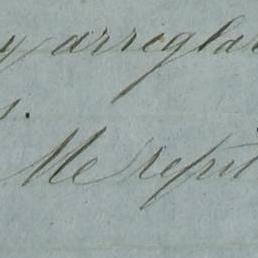 y arreglar
s.
Me repit